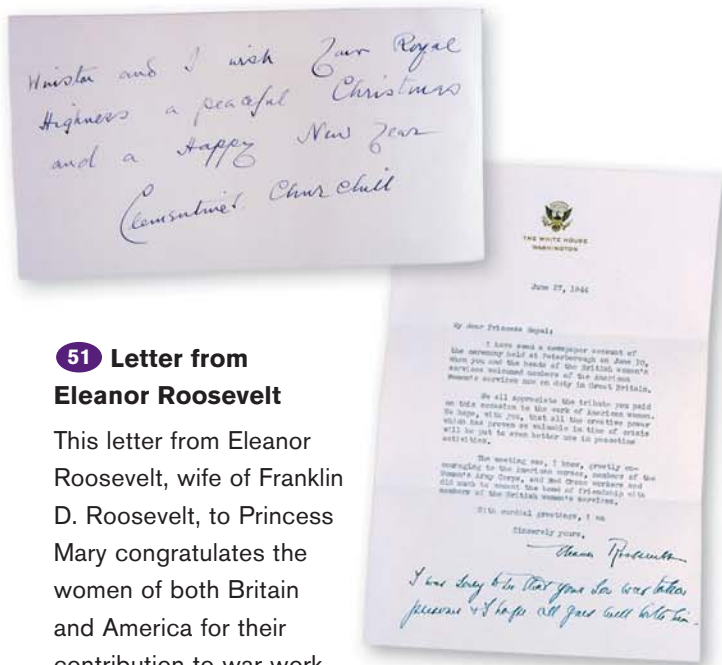 Winston and I wish Your Royal
Highness a peaceful Christmas
and a Happy New Year
Clementine S. Churchill
THE WHITE HOUSE
WASHINGTON
June 27, 1944
My dear Princess Royal:
I have seen a newspaper account of
the ceremony held at Peterborough on June 10,
when you and the heads of the British women's
services welcomed members of the American
Women's services now on duty in Great Britain.
We all appreciate the tribute you paid
on this occasion to the work of American women.
We hope, with you, that all the creative power
which has proven so valuable in time of crisis
will be put to even better use in peacetime
activities.
The meeting was, I know, greatly en-
couraging to the American nurses, members of the
Women's Army Corps, and Red Cross workers and
did much to cement the bond of friendship with
members of the British women's services.
With cordial greetings, I am
Sincerely yours,
Eleanor Roosevelt
I was sorry to hear that your son was taken
prisoner & I hope all goes well with him.
51 Letter from
Eleanor Roosevelt
This letter from Eleanor
Roosevelt, wife of Franklin
D. Roosevelt, to Princess
Mary congratulates the
women of both Britain
and America for their
contribution to war work